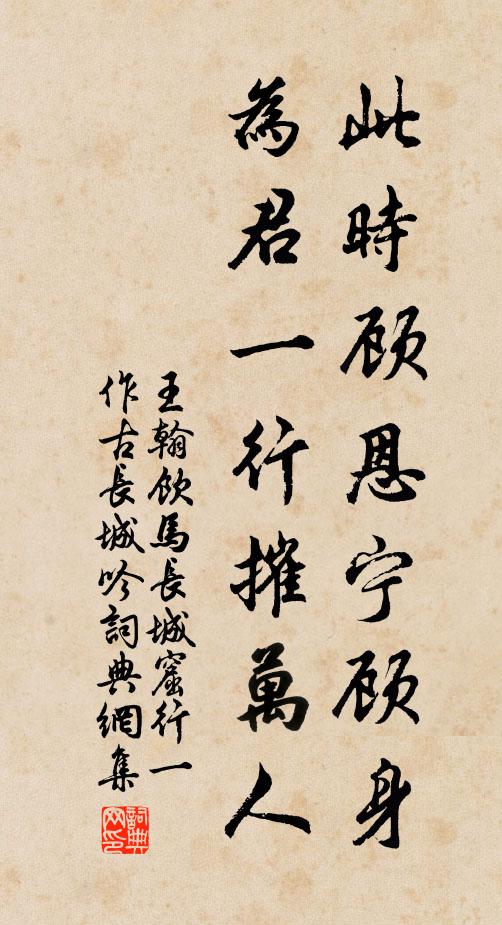 此時顾恩宁顾身
為君一行摧萬人
王翰飲馬長城窟行一
作古長城吟詞典網集
詞典网印